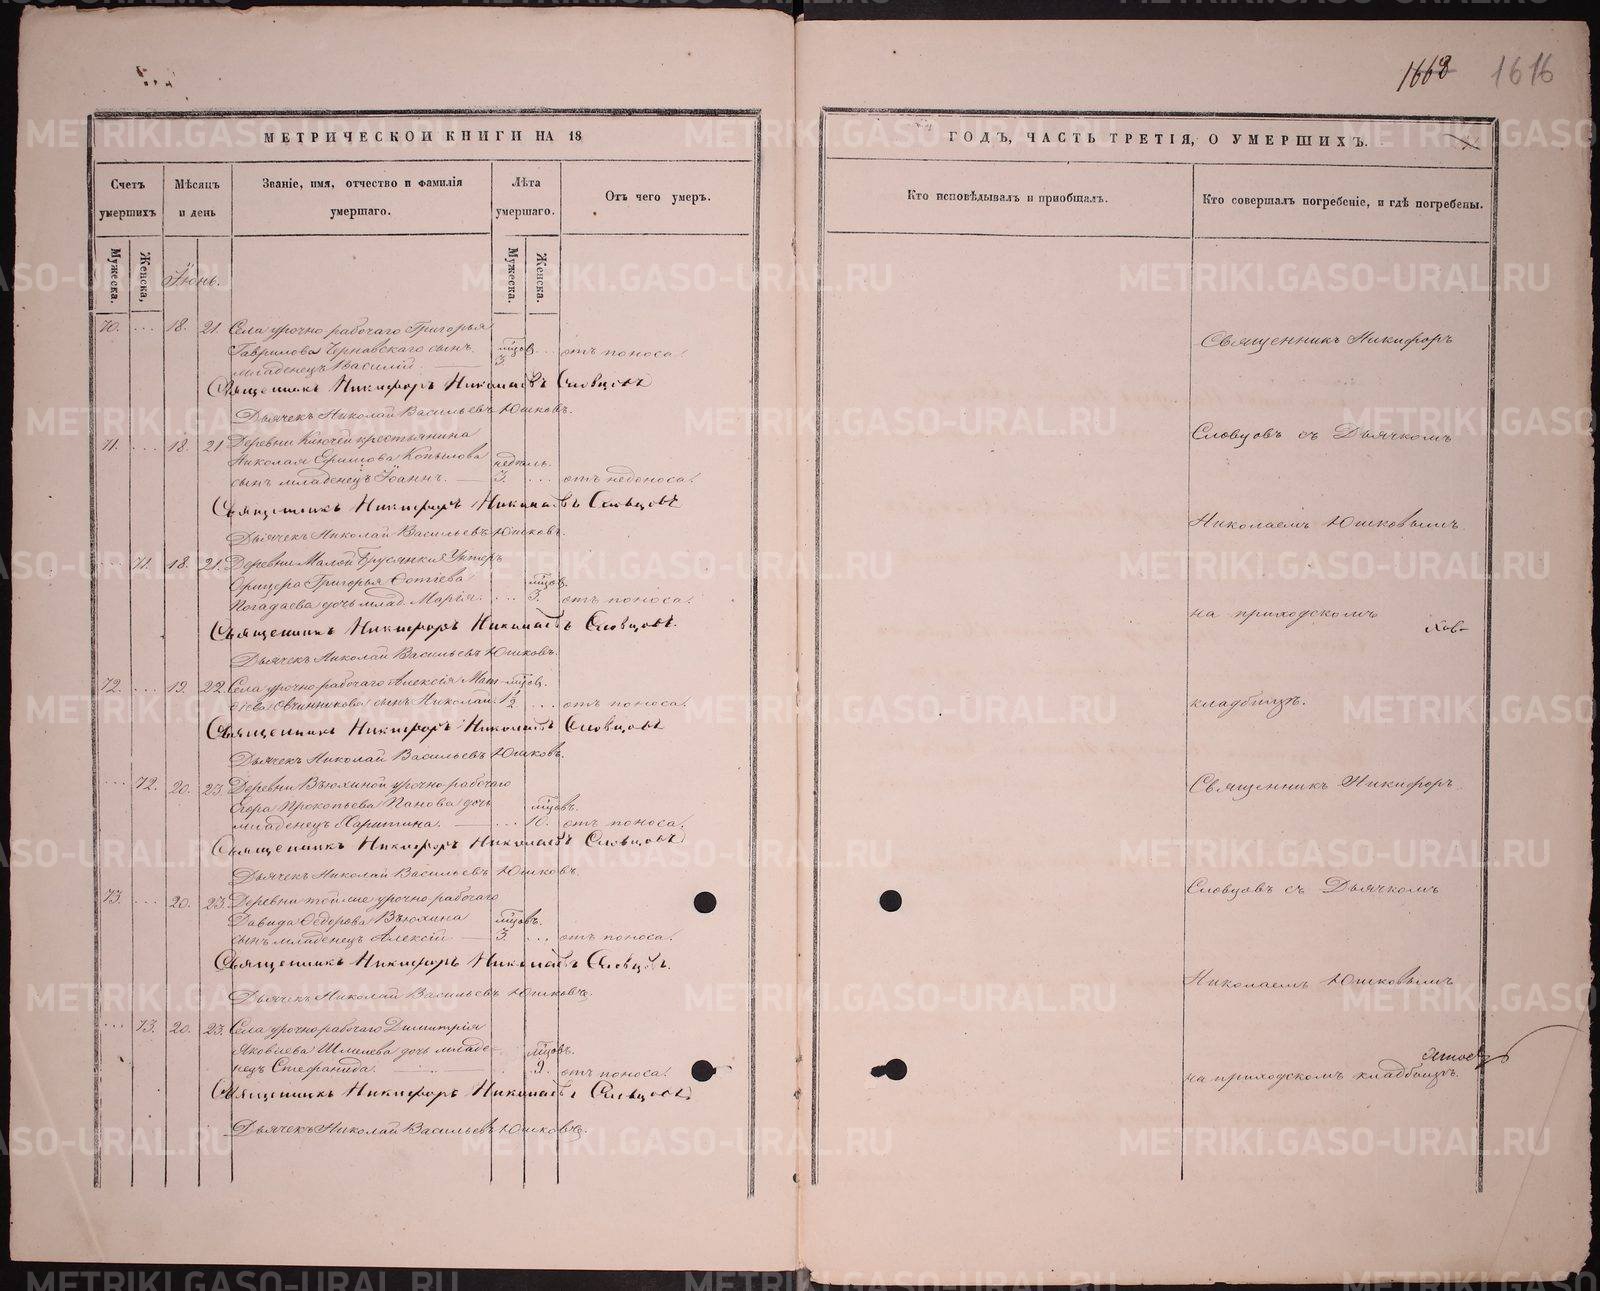 1668 1616
МЕТРИЧЕСКОИ КНИГИ НА 18
ГОДЪ, ЧАСТЬ ТРЕТІЯ, О УМЕРШИХЪ.
Счетъ умершихъ
Мѣсяцъ и день
Званіе, имя, отчество и фамилія умершаго.
Лѣта умершаго.
Отъ чего умеръ.
Кто исповѣдывалъ и пріобщалъ.
Кто совершалъ погребеніе, и гдѣ погребены.
Мужеска.
Женска,
Мужеска.
Женска.
Іюнь.
70. ... 18. 21. Села урочно-рабочаго Григорья
Гаврилова Чернавскаго сынъ мѣсяцов.
младенецъ Василій. 3. ... отъ поноса.
Священникъ Никифоръ Николаевъ Словцовъ
Дьячекъ Николай Васильевъ Юшковъ.
71. ... 18. 21. Деревни Ключей крестьянина
Николая Ефимова Копылова недѣль.
сынъ младенецъ Іоаннъ. 3. ... отъ недоноса.
Священникъ Никифоръ Николаевъ Словцовъ
Дьячекъ Николай Васильевъ Юшковъ.
... 71. 18. 21. Деревни Малой Брусянки Унтеръ
Офицера Григорья Фотіева мѣсяцов.
Погадаева дочь млад. Марія. ... 3. отъ поноса.
Священникъ Никифоръ Николаевъ Словцовъ.
Дьячекъ Николай Васильевъ Юшковъ.
72. ... 19. 22. Села урочно-рабочаго Алексія Мат-
ѳіева Овчинникова сынъ Николай. 1½ ... отъ поноса.
Священникъ Никифоръ Николаевъ Словцовъ
Дьячекъ Николай Васильевъ Юшковъ.
... 72. 20. 23. Деревни Вьюхиной урочно-рабочаго
Егора Прокопьева Панова дочь мѣсяцовъ.
младенецъ Харитина. ... 10. отъ поноса.
Священникъ Никифоръ Николаевъ Словцовъ
Дьячекъ Николай Васильевъ Юшковъ.
73. ... 20. 23. Деревни тойже урочно-рабочаго
Давида Ѳедорова Вьюхина мѣсяцовъ.
сынъ младенецъ Алексій 3. ... отъ поноса.
Священникъ Никифоръ Николаевъ Словцовъ.
Дьячекъ Николай Васильевъ Юшковъ.
... 73. 20. 23. Села урочно-рабочаго Димитрія
Яковлева Шмелева дочь младе- мѣсяцовъ.
нецъ Стефанида. 9. отъ поноса.
Священникъ Никифоръ Николаевъ Словцовъ
Дьячекъ Николай Васильевъ Юшковъ.
Священникъ Никифоръ
Словцовъ съ Дьячкомъ
Николаемъ Юшковымъ
на приходскомъ
кладбищѣ.
Священникъ Никифоръ
Словцовъ съ Дьячкомъ
Николаемъ Юшковымъ
на приходскомъ кладбищѣ.
METRIKI.GASO-URAL.RU